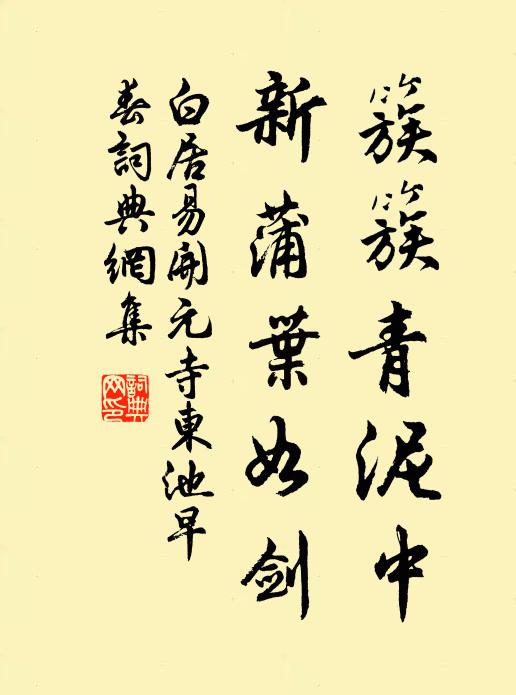 簇簇青泥中
新蒲葉如劍
白居易開元寺東池早
春詞典網集
詞典网印